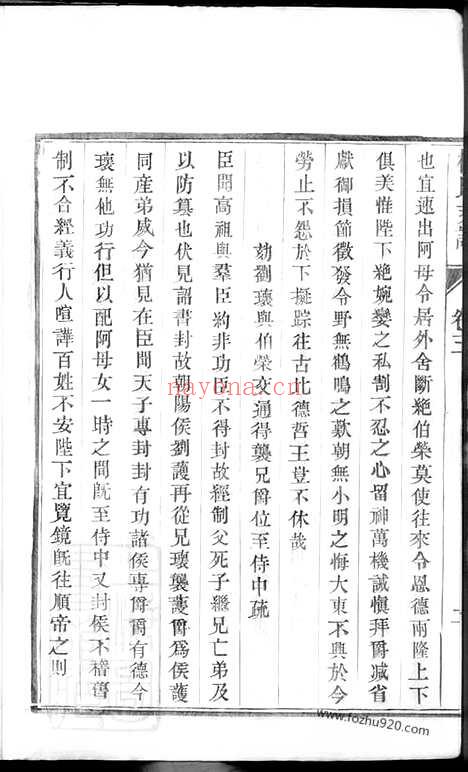 也宜速出阿母令居外舍斷絶伯榮莫使往來令恩德兩隆上下
俱美惟陛下絶婉孌之私割不忍之心留神萬機誡愼拜爵减省
獻御損節徵發令野無鶴鳴之歎朝無小明之悔大東不興於今
勞止不怨於下擬踪往古比德哲王豈不休哉
劾劉瓌與伯榮交通得襲兄爵位至侍中疏
臣聞高祖與羣臣約非功臣不得封故經制父死子繼兄亡弟及
以防篡也伏見詔書封故朝陽侯劉護再從兄瓌襲護爵爲侯護
同產弟威今猶見在臣聞天子專封封有功諸侯專爵爵有德今
瓌無他功行但以配阿母女一時之間旣至侍中又封侯不稽舊
制不合經義行人喧譁百姓不安陛下宜覽鏡旣往順帝之則
卷三
nayona.cn
www.fozhu920.com